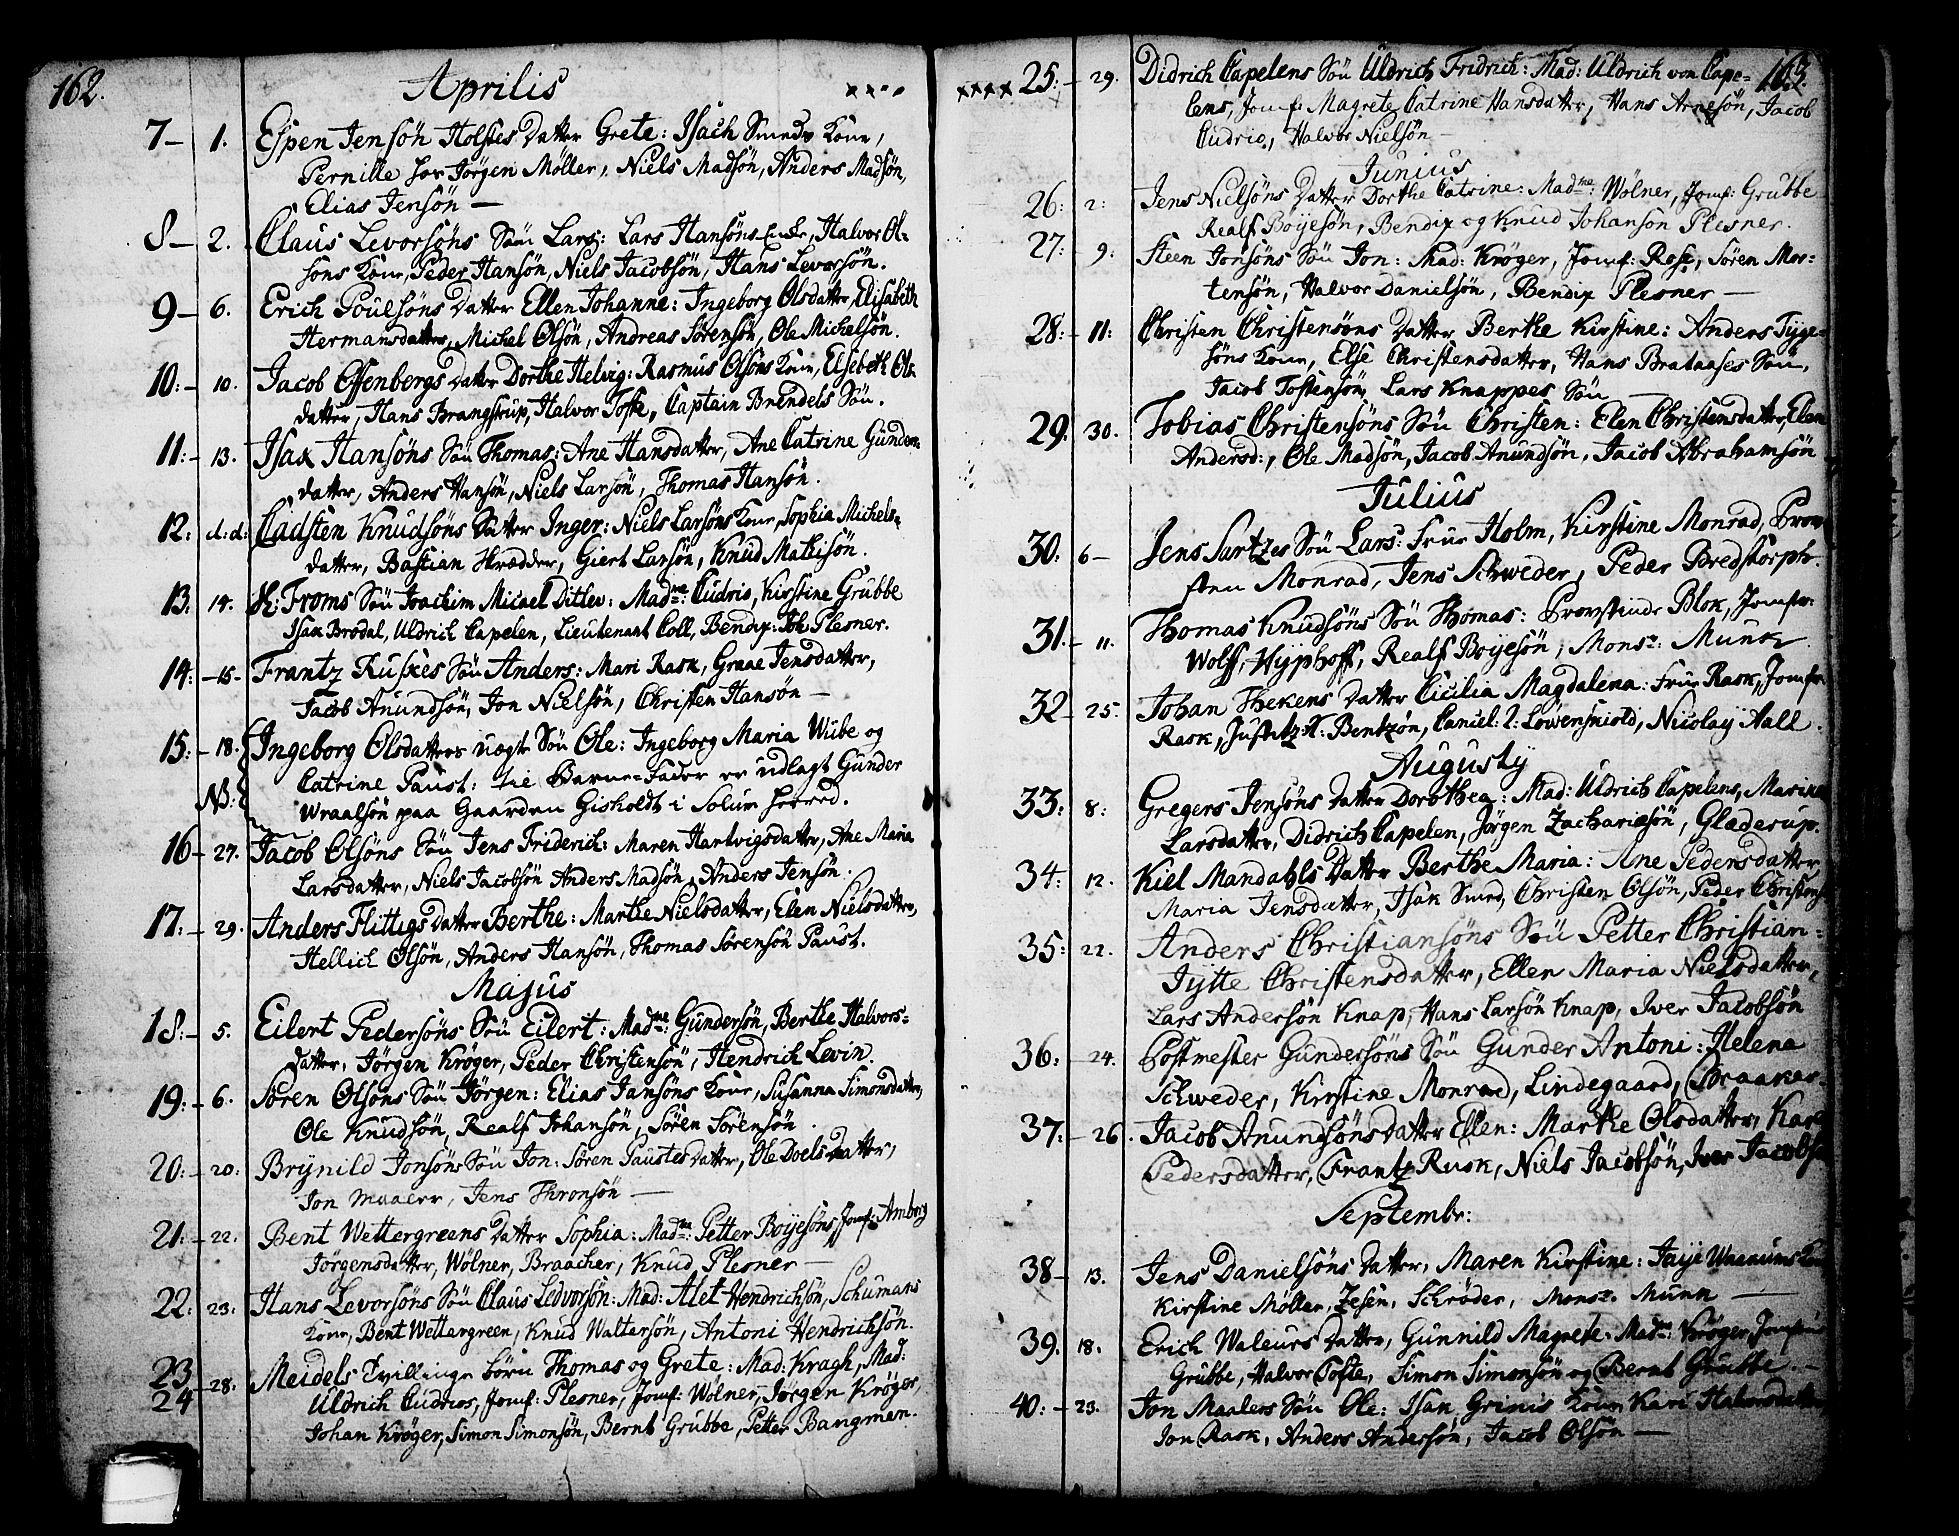 162.
Aprilis
7 – 1. Espen Jensön Holstes Datter Grete: Isach Smeds Kone,
Pernille hos Jörgen Möller, Niels Madsön, Anders Madsön,
Elias Jensön –
8 – 2. Claus Levorsöns Sön Lars: Lars Hansöns Enke, Halvor Ol=
söns Kone, Peder Hansön, Niels Jacobsön, Hans Levorsön.
9 – 6. Erich Poulsöns Datter Ellen Johanne: Ingeborg Olsdatter, Elisabeth
Hermansdatter, Michel Olsön, Andreas Sörensön, Ole Michelsön.
10: – 10. Jacob Essenbergs Datter Dorthe Helvig: Rasmus Olsöns Kone, Elsebeth Ols
datter, Hans Brangstrup, Halvor Tofte, Captain Brendels Sön.
11: – 13. Isax Hansöns Sön Thomas: Ane Hansdatter, Ane Catrine Gunders
datter, Anders Hansön, Niels Larsön, Thomas Hansön.
12: d:d: Cadsten Knudsöns Datter Inger: Niels Larsöns Kone, Sophia Michels=
datter, Bastian Skrædder, Giert Larsön, Knud Mathisön.
13. 14. Hr: Froms Sön Joachim Micael Ditlev: Madme: Cudrio, Kirstine Grubbe
Isax Brodal, Uldrich Capelen, Lieutenant Coll, Bendix: Joh Plesner.
14: – 15 – Frantz Ruskes Sön Anders: Mari Rask, Graae Jensdatter,
Jacob Anundsön, Jon Nielsön, Christen Hansön –
15: – 18: Ingeborg Olsdatters uægte Sön Ole: Ingeborg Maria Wibe og
NB: Catrine Paust: til Barne-Fader er udlagt Gunder
Wraalsön paa Gaarden Gisholdt i Solum Herred.
16 – 27. Jacob Olsöns Sön Jens Friderich: Maren Hartvigsdatter, Ane Maria
Larsdatter, Niels Jacobsön Anders Madsön, Anders Jensön.
17: – 29. Anders Flittigs Datter Berthe: Marthe Nielsdatter, Elen Nielsdatter,
Hellich Olsön, Anders Hansön, Thomas Sörensön Paust.
Majus
18: – 5. Eilert Pedersöns Sön Eilert: Madme: Gundersön, Berthe Halvors=
datter, Jörgen Kröger, Peder Christensön, Hendrich Levin.
19: – 6. Sören Olsöns Sön Jörgen: Elias Jansöns Kone, Susanna Simonsdatter,
Ole Knudsön, Realf Johansön, Sören Sörensön.
20: – 20: Brynild Jonsöns Sön Jon: Sören Paustes Datter, Ole Doels Datter,
Jon Maaler, Jens Thronsön –
21: – 22: Bent Wettergreens Datter Sophia: Madme: Petter Boyesöns, Jomf: Amborg
Jörgensdatter, Wölner, Braacher, Knud Plesner –
22: 23: Hans Levorsöns Sön Claus Ledvorsön: Mad: Alet Hendrichsön, Schumans
Kone, Bent Wettergreen, Knud Waltersön, Antoni Hendrichsön.
23 24 – 28: Meidels Tvillinge börn Thomas og Grete: Mad: Kragh, Mad:
Uldrich Cudrios, Jomf: Plesner, Jomf: Wölner, Jörgen Kröger,
Johan Kröger, Simon Simonsön, Bernt Grubbe, Petter Bangmen.
163.
25: – 29. Didrich Capelens Sön Uldrich Fridrich: Mad: Uldrich von Cape=
lens, Jomf: Magrete Catrine Hansdatter, Hans Arnesön, Jacob
Cudrio, Halvor Nielsön –
Junius
26: 2: Jens Nielsöns Datter Dorthe Catrine: Madme: Wölner, Jomf: Grubbe
Realf Boyesön, Bendix og Knud Johansön Plesner.
27: – 9: Steen Jonsöns Sön Jon: Mad: Kröger, Jomf: Rose, Sören Mor=
tensön, Halvor Danielsön, Bendix Plesner –
28: – 11: Christen Christensöns Datter Berthe Kirstine: Anders Tyge=
söns Kone, Else Christensdatter, Hans Brataases Sön,
Jacob Toftensön, Lars Knappes Sön –
29. 30. Tobias Christensöns Sön Christen: Elen Christensdatter, Elen
Andersd:, Ole Madsön, Jacob Anundsön, Jacob Abrahamsön
Julius
30. 6 – Jens Sartzes Sön Lars: Frue Holm, Kirstine Monrad, Prow
sten Monrad, Jens Schweder, Peder Bredstorph.
31. – 11. Thomas Knudsöns Sön Thomas: Prowstinde Blok, Jomfr:
Wolff, Hyphoff, Realf Boyesön, Monsr: Munk
32 – 25. Johan Thekens Datter Cicilia Magdalena: Frue Rask, Jomfr:
Rask, Justitz R: Bentzön, Cancel: R: Löwenskiold, Nicolay Aall.
Augusty
33: 8: Gregers Jensöns Datter Dorothea: Mad: Uldrich Capelens, Maria
Larsdatter, Didrich Capelen, Jörgen Zachariæsön, Glæderup.
34: 12. Kiel Mandahls Datter Berthe Maria: Ane Pedersdatter
Maria Jensdatter, Isak Smed, Christen Olsön, Peder Christens
35: 22. Anders Christiansöns Sön Petter Christian:
Tytte Christensdatter, Ellen Maria Nielsdatter,
Lars Andersön Knap, Hans Larsön Knap, Iver Jacobsön
36: – 24. Postmester Gundersöns Sön Gunder Antoni: Helena
Schweder, Kirstine Monrad, Lindegaard, Braaker.
37: – 26. Jacob Anundsöns Datter Ellen: Marthe Olsdatter, Kare
Pedersdatter, Frantz Rusk, Niels Jacobsön, Iver Jacobsö
Septembr:
38 – 13. Jens Danielsöns Datter, Maren Kirstine: Taije Waanums Kone
Kirstine Möller, Zesen, Schröder, Monsr: Munk –
39. 18. Erich Waleurs Datter, Gunnild Magrete: Madme: Kröger, Jomfrue
Grubbe, Halvor Tofte, Simon Simonsön og Bernt Grubbe. –
40: – 23. Jon Maalers Sön Ole: Isak Grinis Kone, Kari Halvorsdatter,
Jon Rask, Anders Andersön, Jacob Olsön –